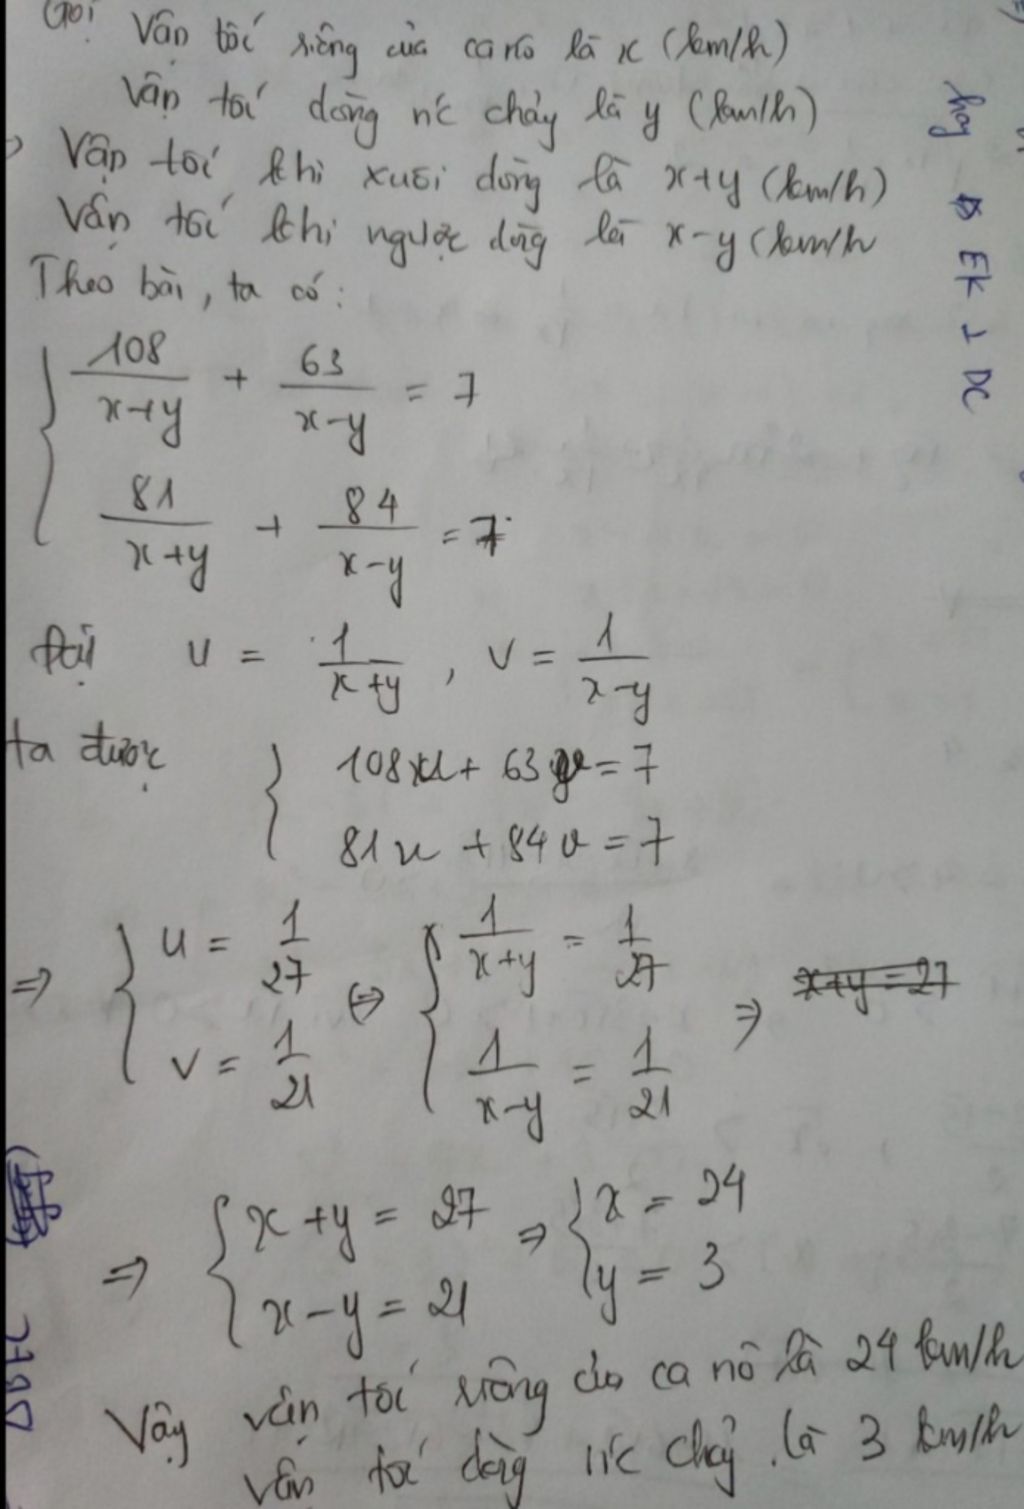 Gọi Vận tốc riêng của ca nô là x (km/h)
Vận tốc dòng nc chảy là y (km/h)
Vận tốc khi xuôi dòng là x+y (km/h)
Vận tốc khi ngược dòng là x-y (km/h
Theo bài, ta có:
108/x+y + 63/x-y = 7
81/x+y + 84/x-y = 7
Đặt u = 1/x+y , v = 1/x-y
ta được 108u + 63v = 7
81u + 84v = 7
⇒ { u = 1/27 ⇔ { 1/x+y = 1/27 ⇒ x+y=27
v = 1/21 1/x-y = 1/21
⇒ { x+y = 27 ⇒ { x = 24
x-y = 21 y = 3
Vậy vận tốc riêng của ca nô là 24 km/h
vận tốc dòng nc chảy là 3 km/h
hay
EK ⊥ DC